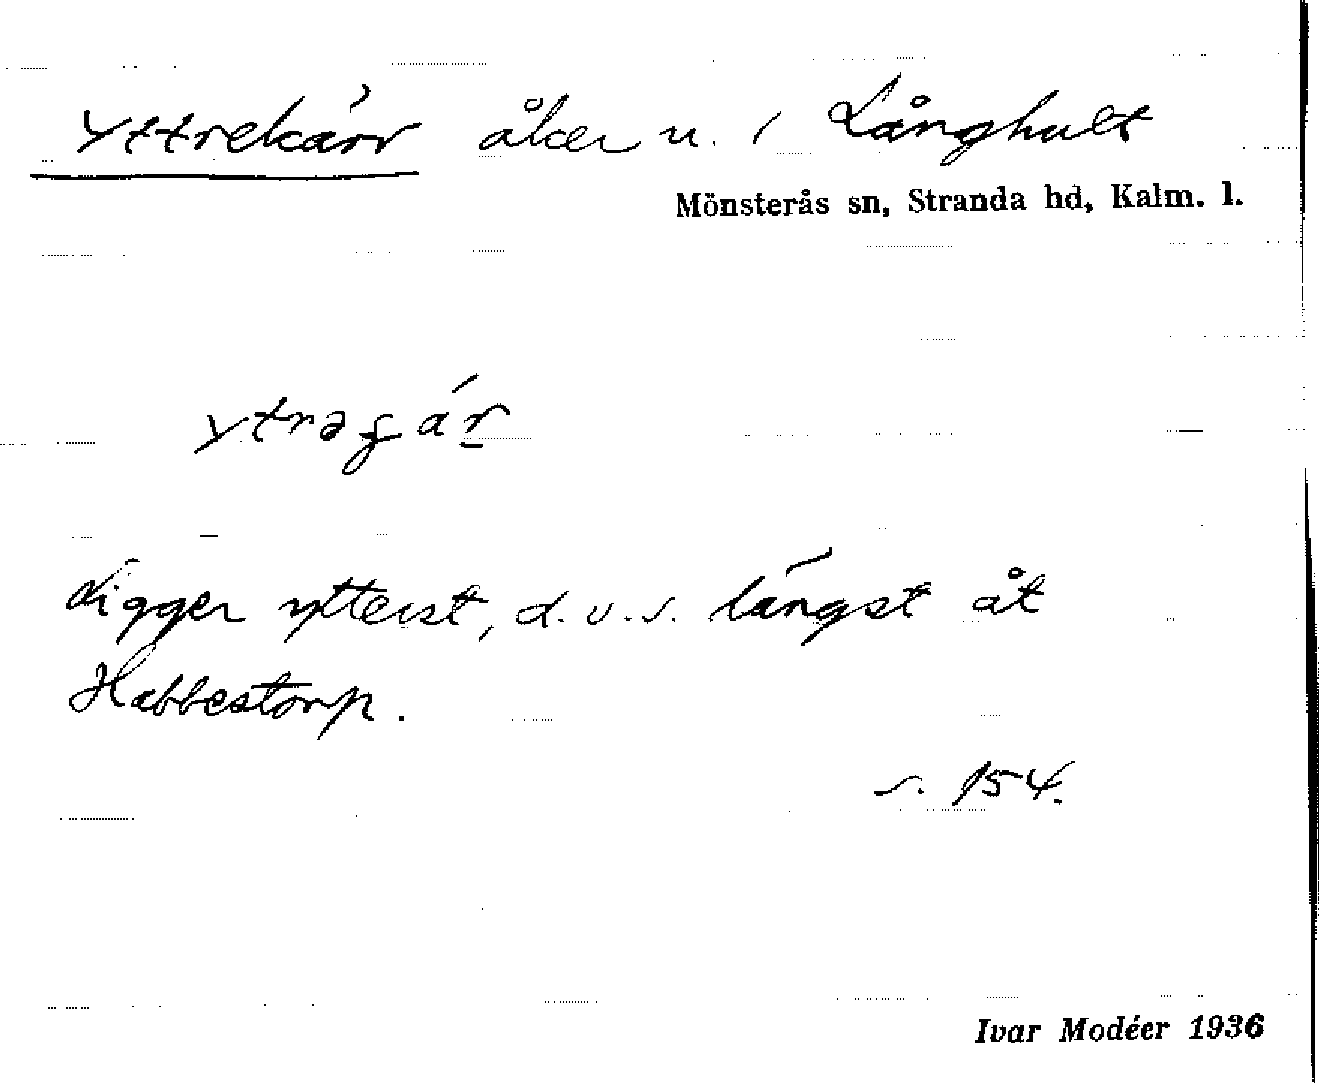 Yttrekärr åker u. 1 Långhult
Mönsterås sn, Stranda hd, Kalm. l.
ytrəʂär
Ligger ytterst, d.v.s. längst åt
Habbestorp.
s. 154.
Ivar Modéer 1936